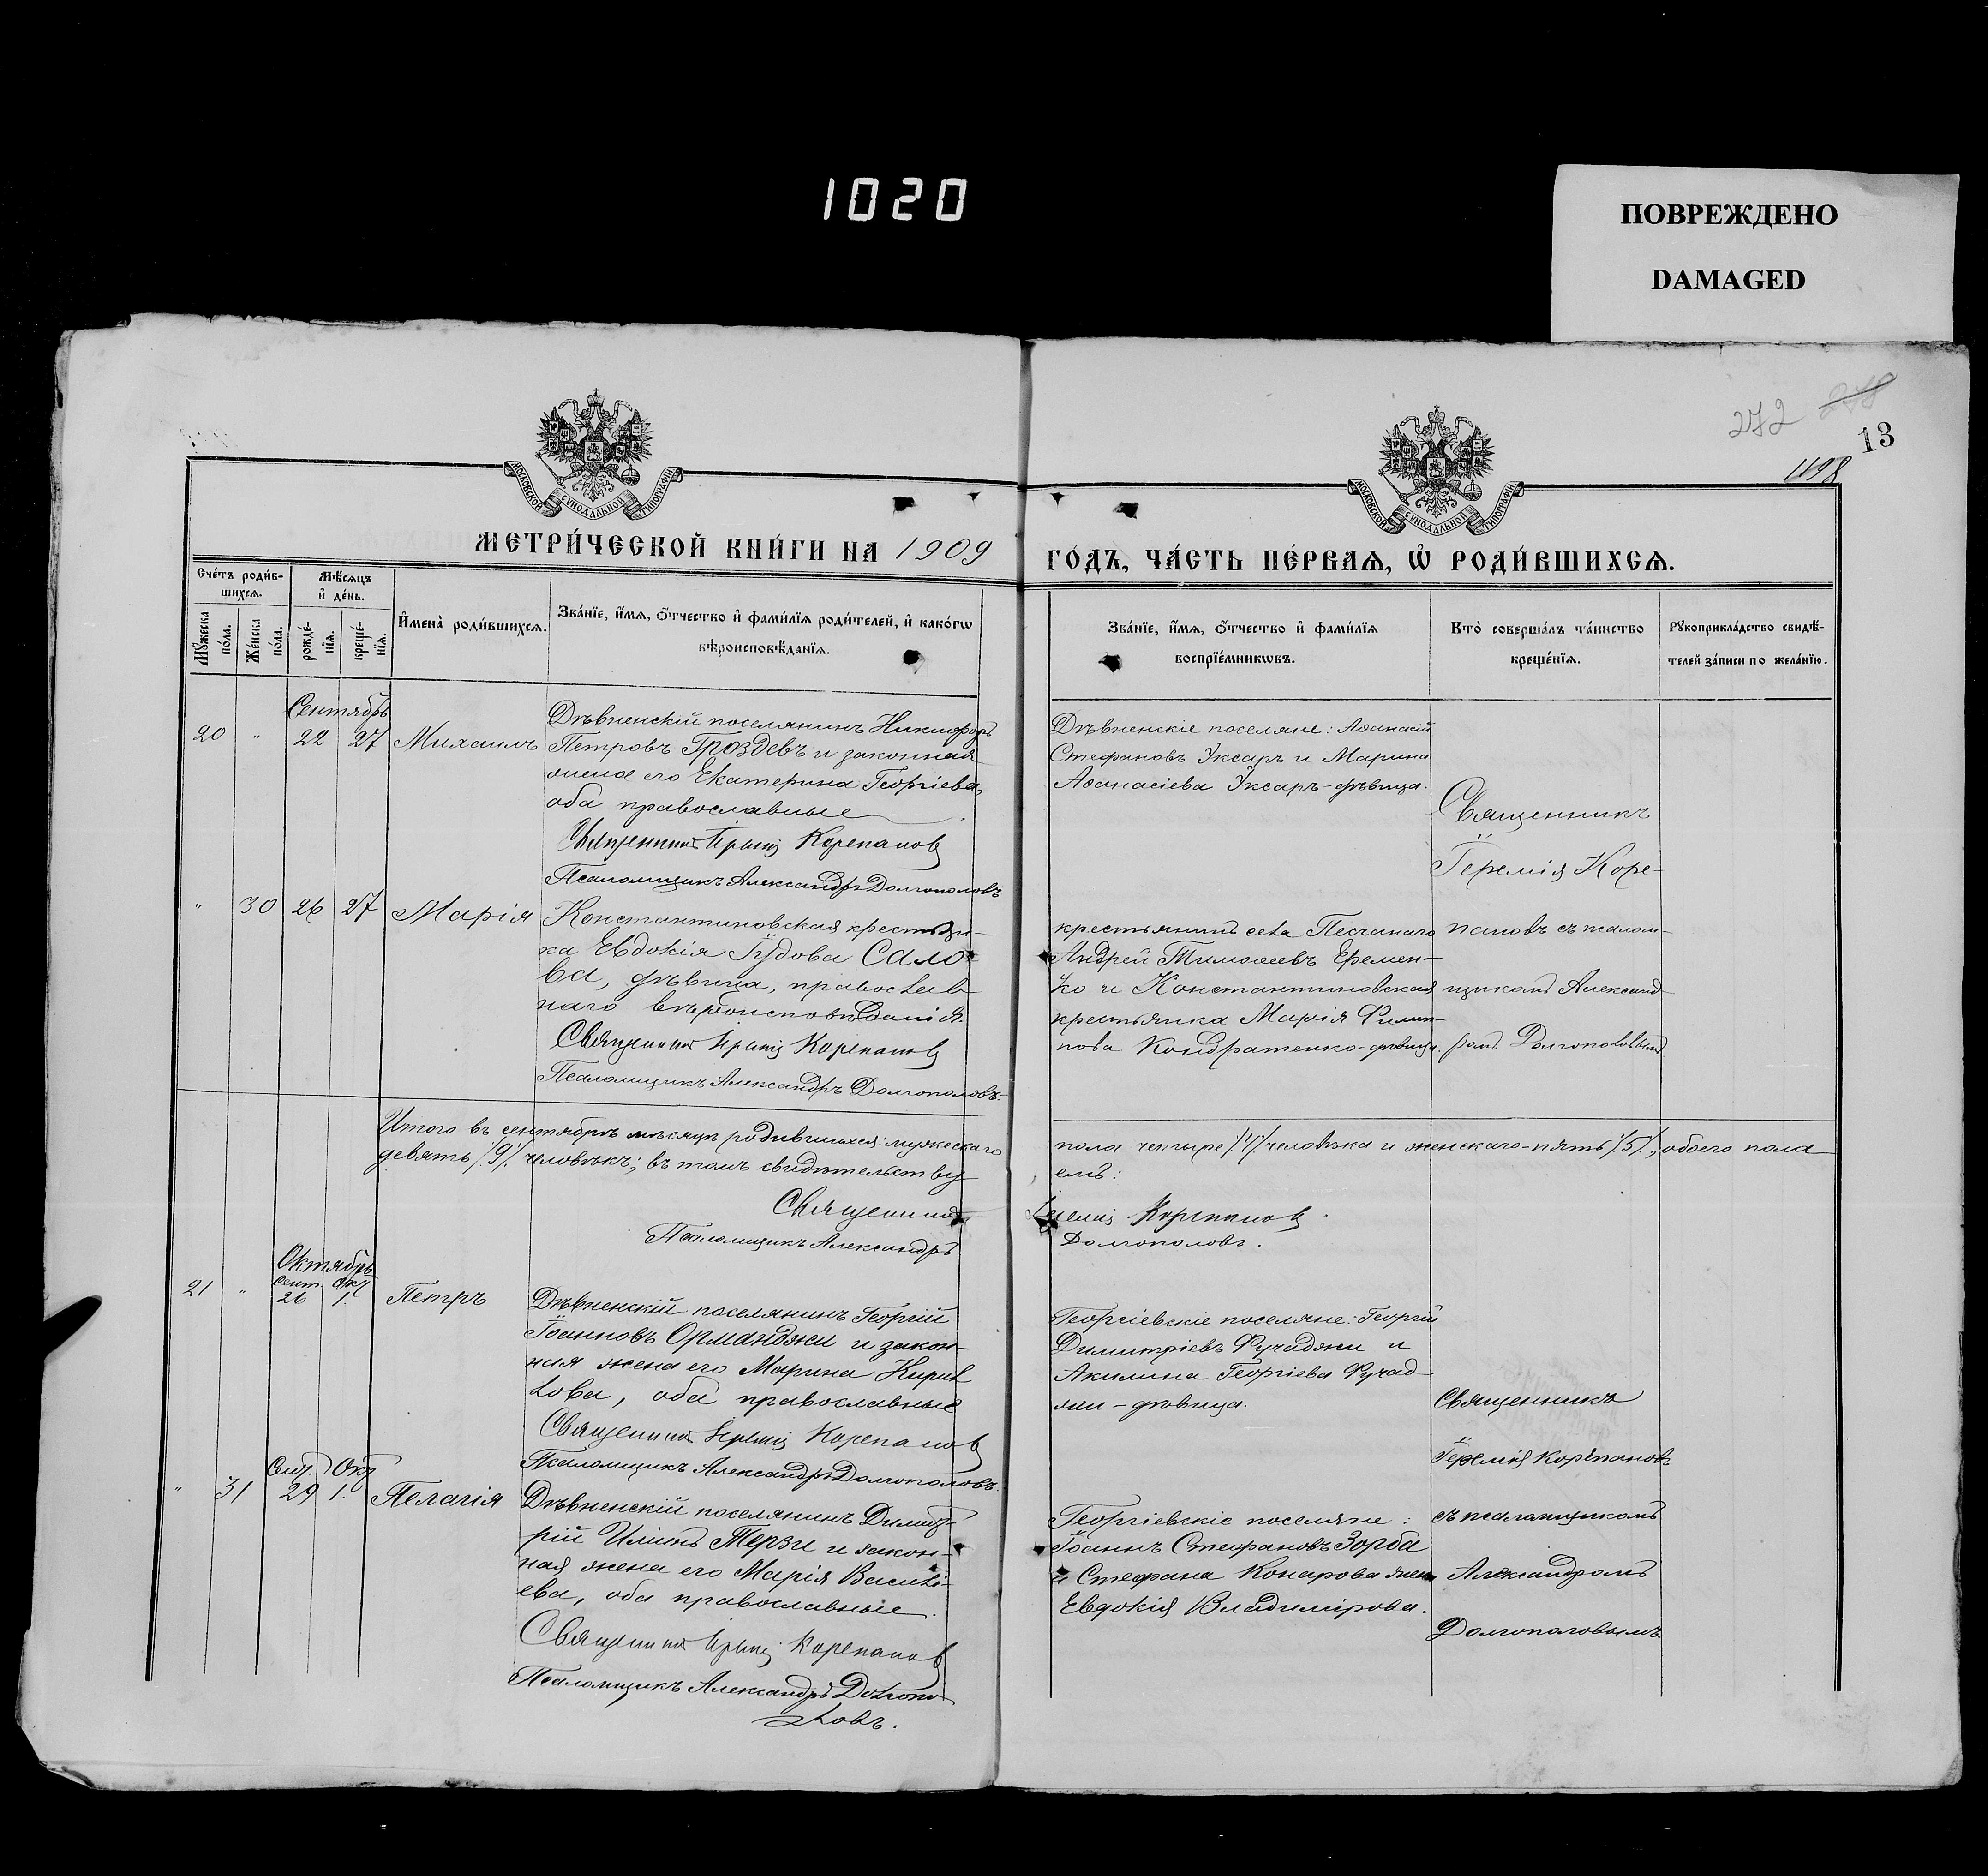 1020
ПОВРЕЖДЕНО
DAMAGED
272 278
13
1198
МОСКОВСКОЙ СѴНОДАЛЬНОЙ ТИПОГРАФІИ
МОСКОВСКОЙ СѴНОДАЛЬНОЙ ТИПОГРАФІИ
МЕТРИ́ЧЕСКОЙ КНИ́ГИ НА 1909
ГО́ДЪ, ЧА́СТЬ ПЕ́РВАѦ, Ѡ҆ РОДИ́ВШИХСѦ.
Сче́тъ роди́в-
шихсѧ.
Мꙋ́жеска по́ла.
Же́нска по́ла.
Мѣ́сѧцъ
и҆ де́нь.
рожде́-
нїѧ.
креще́-
нїѧ.
И҆мена̀ роди́вшихсѧ.
Зва́нїе, и҆́мѧ, ѻ҆́тчество и҆ фами́лїѧ роди́телей, и҆ како́гѡ
вѣроисповѣ́данїѧ.
Зва́нїе, и҆́мѧ, ѻ҆́тчество и҆ фами́лїѧ
воспрїе́мникѡвъ.
Кто̀ соверша́лъ та́инство
креще́нїѧ.
Рꙋкоприкла́дство свидѣ́-
телей за́писи по жела́нїю.
Сентябрь
20 " 22 27 Михаилъ
Дѣвненскій поселянинъ Никифоръ
Петровъ Гроздевъ и законная
жена его Екатерина Георгіева,
оба православные
Священникъ Іеремія Корепановъ
Псаломщикъ Александръ Долгополовъ
Дѣвненскіе поселяне: Аѳанасій
Стефановъ Уксаръ и Марина
Аѳанасіева Уксаръ-дѣвица.
Священникъ
Іеремія Коре-
" 30 26 27 Марія
Константиновская крестьян-
ка Евдокія Іудова Сало-
ва, дѣвица, православ-
наго вѣроисповѣданія.
Священникъ Іеремія Корепановъ
Псаломщикъ Александръ Долгополовъ.
крестьянинъ села Песчанаго
Андрей Тимоѳеевъ Еремен-
ко и Константиновская
крестьянка Марія Филип-
пова Кондратенко-дѣвица.
пановъ съ псалом-
щикомъ Александ-
ромъ Долгополовымъ
Итого въ сентябрѣ мѣсяцѣ родившихся: мужескаго
пола четыре /4/ человѣка и женскаго-пять /5/, обоего пола
девять /9/ человѣкъ; въ томъ свидѣтельству-
емъ:
Священникъ
Іеремія Корепановъ.
Псаломщикъ Александръ
Долгополовъ.
Октябрь
Сент. Окт.
21 " 26 1. Петръ
Дѣвненскій поселянинъ Георгій
Іоанновъ Орманджи и закон-
ная жена его Марина Кирил-
лова, оба православные
Священникъ Іеремія Корепановъ
Псаломщикъ Александръ Долгополовъ.
Георгіевскіе поселяне: Георгій
Димитріевъ Фучаджи и
Акилина Георгіева Фучад-
жи-дѣвица.
Священникъ
Іеремія Корепановъ
Сент. Окт.
" 31 29 1. Пелагія
Дѣвненскій поселянинъ Димит-
рій Иліинъ Терзи и закон-
ная жена его Марія Василі-
ева, оба православные.
Священникъ Іеремія Корепановъ
Псаломщикъ Александръ Долгопо-
ловъ.
Георгіевскіе поселяне:
Іоаннъ Стефановъ Зорба
и Стефана Конарова жена
Евдокія Владимірова.
съ псаломщикомъ
Александромъ
Долгополовымъ